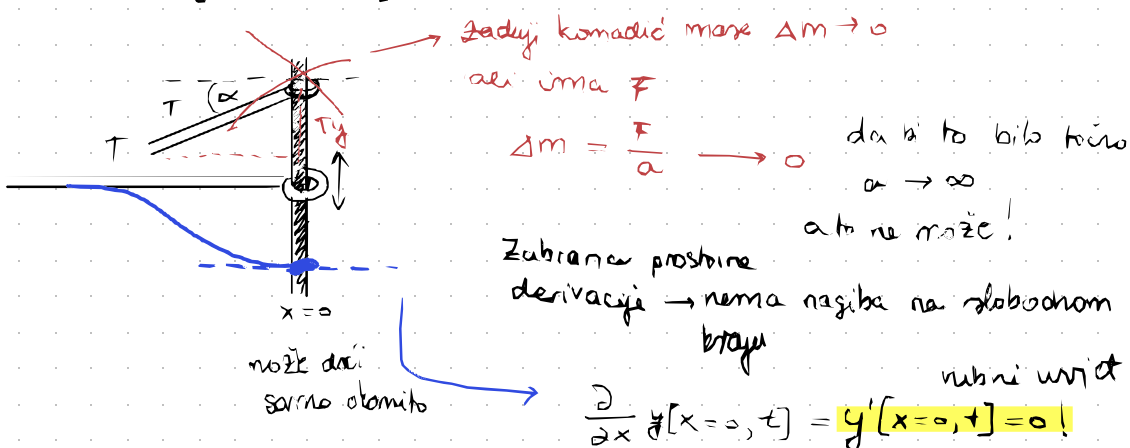 zadnji komadić mase Δm → 0
ali ima F
Δm = F/a → 0
da bi to bilo točno
a → ∞
a to ne može!
T α
T
Ty
x = 0
može ići
samo okomito
Zabrana prostorne
derivacije → nema nagiba na slobodnom
kraju
rubni uvjet
∂/∂x y[x=0, t] = y'[x=0, t] = 0 !